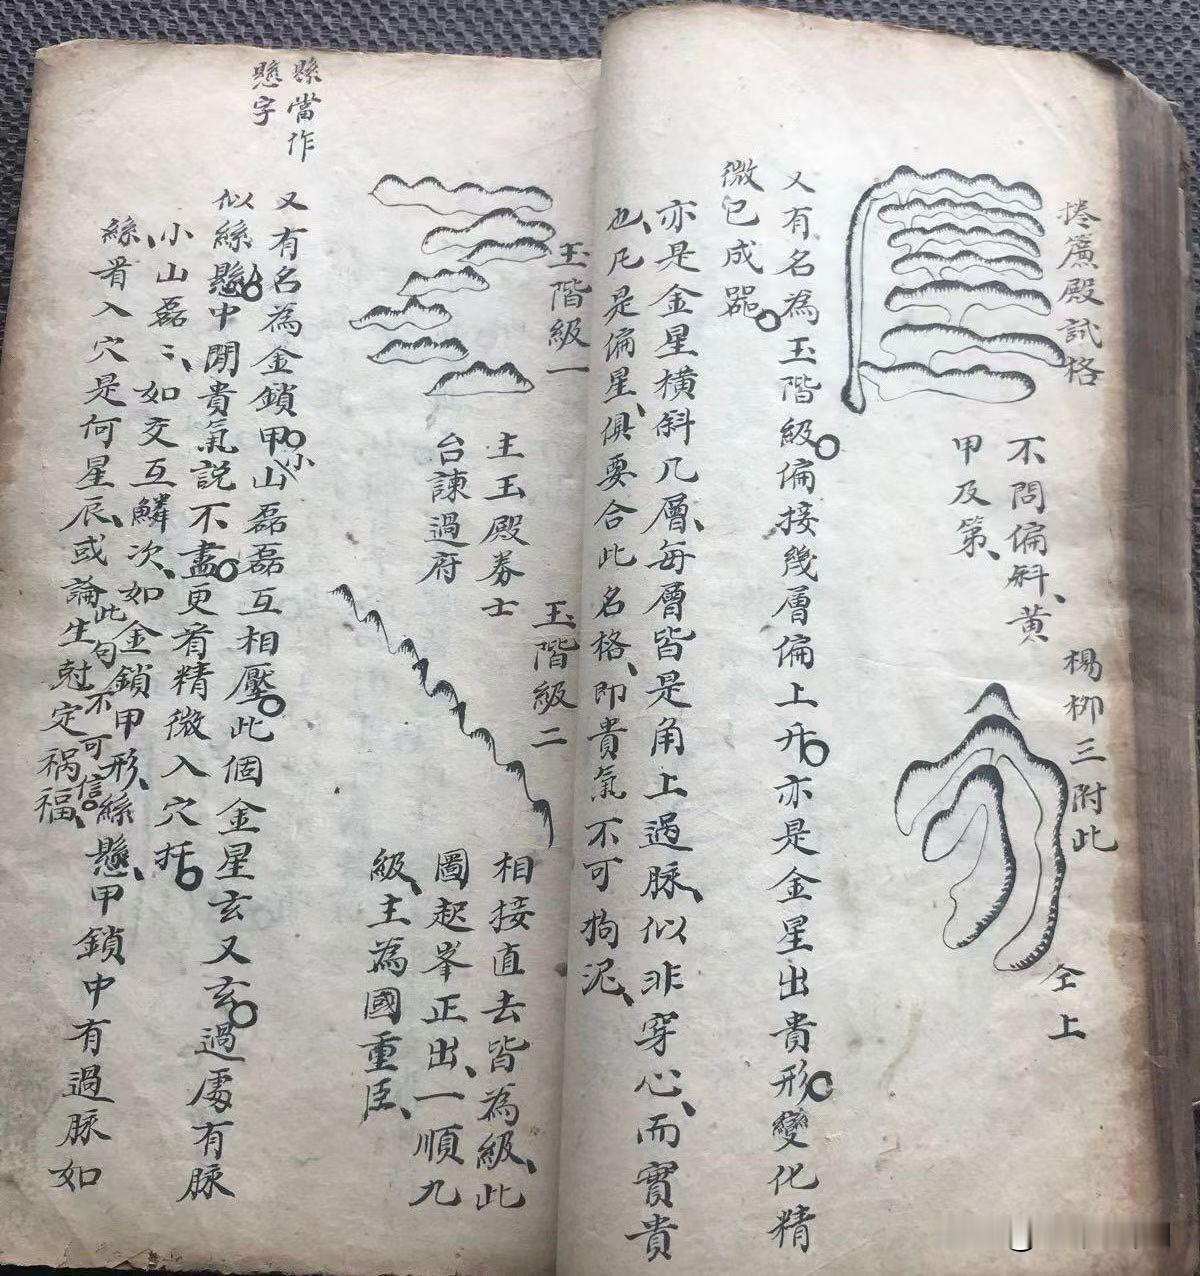 捲簾殿試格
不問偏斜、黃
甲及第、
楊柳三附此
仝上
又有名為玉階級偏接幾層偏上升亦是金星出貴形變化精
微已成器
亦是金星橫斜几層、每層皆是角上過脉、似非穿心、而實貴
也、凡是偏星、俱要合此名格、即貴氣不可拘泥、
玉階級一
主玉殿劵士
台諫過府
玉階級二
相接直去皆為級、此
圖起峯正出、一順九
級、主為國重臣、
縣當作
懸字
又有名為金鎖甲小山磊磊互相壓此個金星玄又玄過處有脉
似絲懸中閒貴氣説不盡更看精微入穴括
小山磊〻如交互鱗次、如金鎖甲形、絲懸、甲鎖中有過脉如
絲、看入穴是何星辰、或論生尅定禍福、
此句不可信